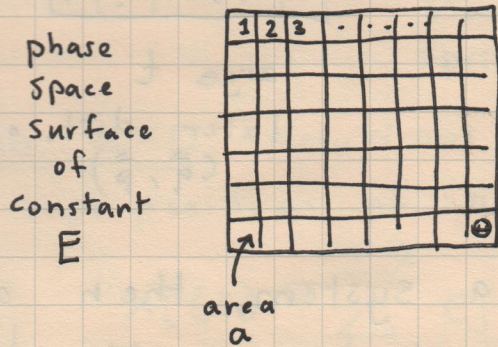 phase
space
surface
of
constant
E
1 2 3 . . . . .
area
a